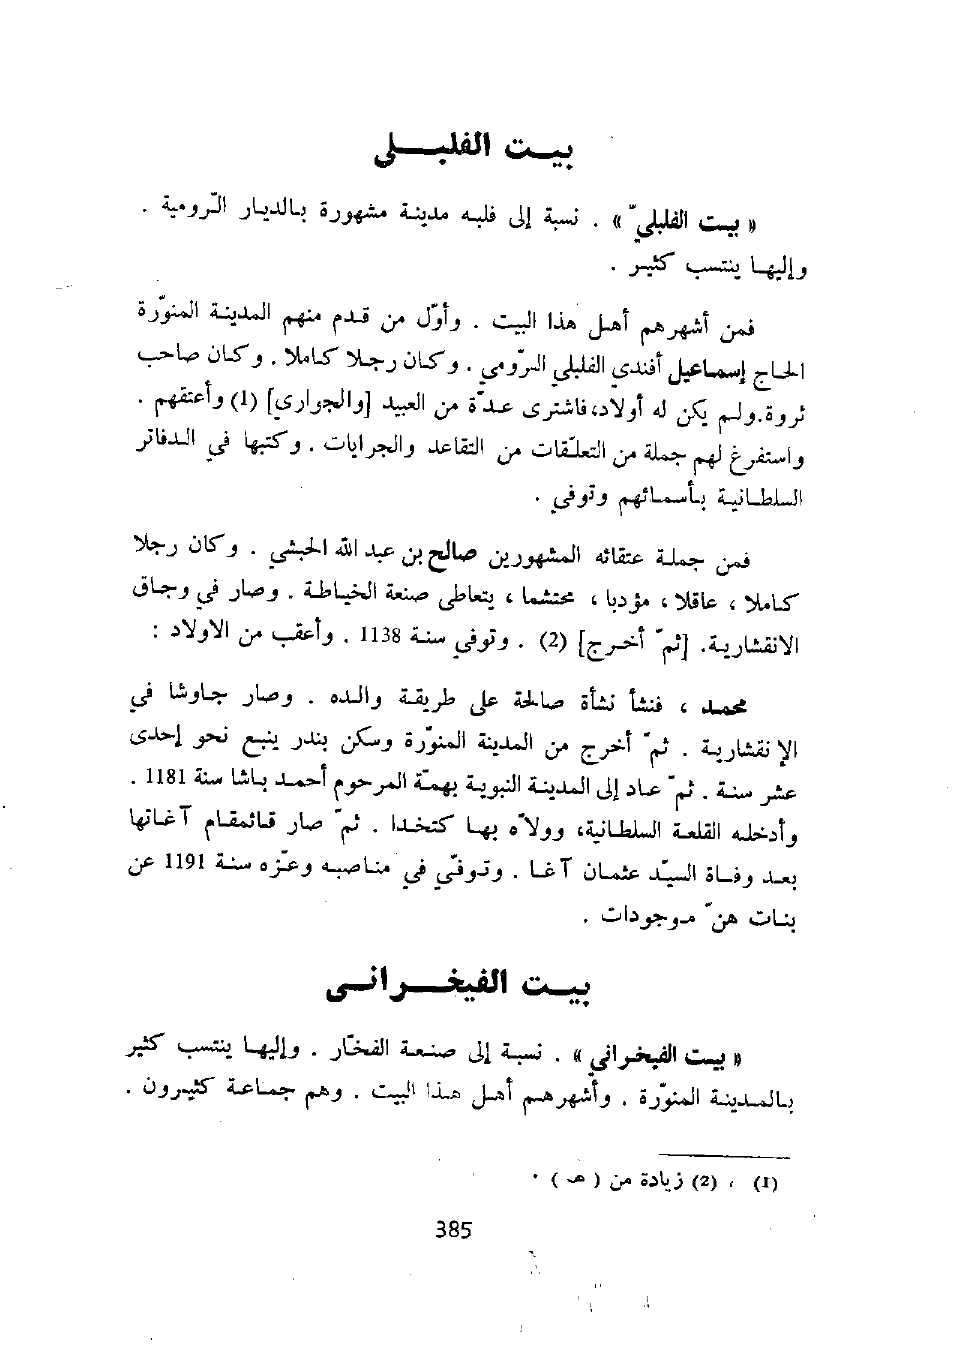 بيــت الفلبــلي
« بيت الفلبليّ » . نسبة إلى فلبه مدينة مشهورة بالديار الرّومية .
وإليها ينتسب كثير .
فمن أشهرهم أهل هذا البيت . وأوّل من قدم منهم المدينة المنوّرة
الحاج إسماعيل أفندي الفلبلي الرّومي . وكان رجلا كاملا . وكان صاحب
ثروة.ولم يكن له أولاد،فاشترى عدّة من العبيد [والجواري] (1) وأعتقهم .
واستفرغ لهم جملة من التعلّقات من التقاعد والجرايات . وكتبها في الدفاتر
السلطانية بأسمائهم وتوفي .
فمن جملة عتقائه المشهورين صالح بن عبد الله الحبشي . وكان رجلا
كاملا ، عاقلا ، مؤدبا ، محتشما ، يتعاطى صنعة الخياطة . وصار في وجاق
الانقشارية. [ثمّ أخرج] (2) . وتوفي سنة 1138 . وأعقب من الاولاد :
محمد ، فنشأ نشأة صالحة على طريقة والده . وصار جاوشا في
الإنقشارية . ثمّ أخرج من المدينة المنوّرة وسكن بندر ينبع نحو إحدى
عشر سنة . ثمّ عاد إلى المدينة النبوية بهمّة المرحوم أحمد باشا سنة 1181 .
وأدخله القلعة السلطانية، وولاّه بها كتخدا . ثمّ صار قائمقام آغاتها
بعد وفاة السيّد عثمان آغا . وتوفّي في مناصبه وعزّه سنة 1191 عن
بنات هنّ موجودات .
بيــت الفيخــرانــى
« بيت الفيخراني » . نسبة إلى صنعة الفخّار . وإليها ينتسب كثير
بالمدينة المنوّرة . وأشهرهم أهل هذا البيت . وهم جماعة كثيرون .
(1) ، (2) زيادة من ( هـ ) .
385